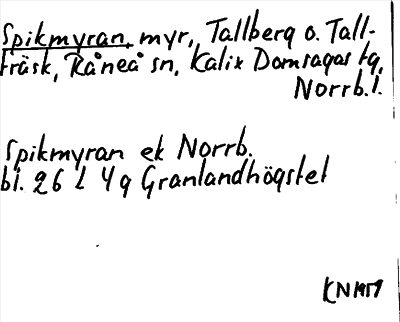 Spikmyran, myr, Tallberg o. Tall-
träsk, Råneå sn, Kalix Domsagas tg,
Norrb. l.
Spikmyran ek Norrb.
bl. 26 L 4 g Granlandhögstet
KN 1959